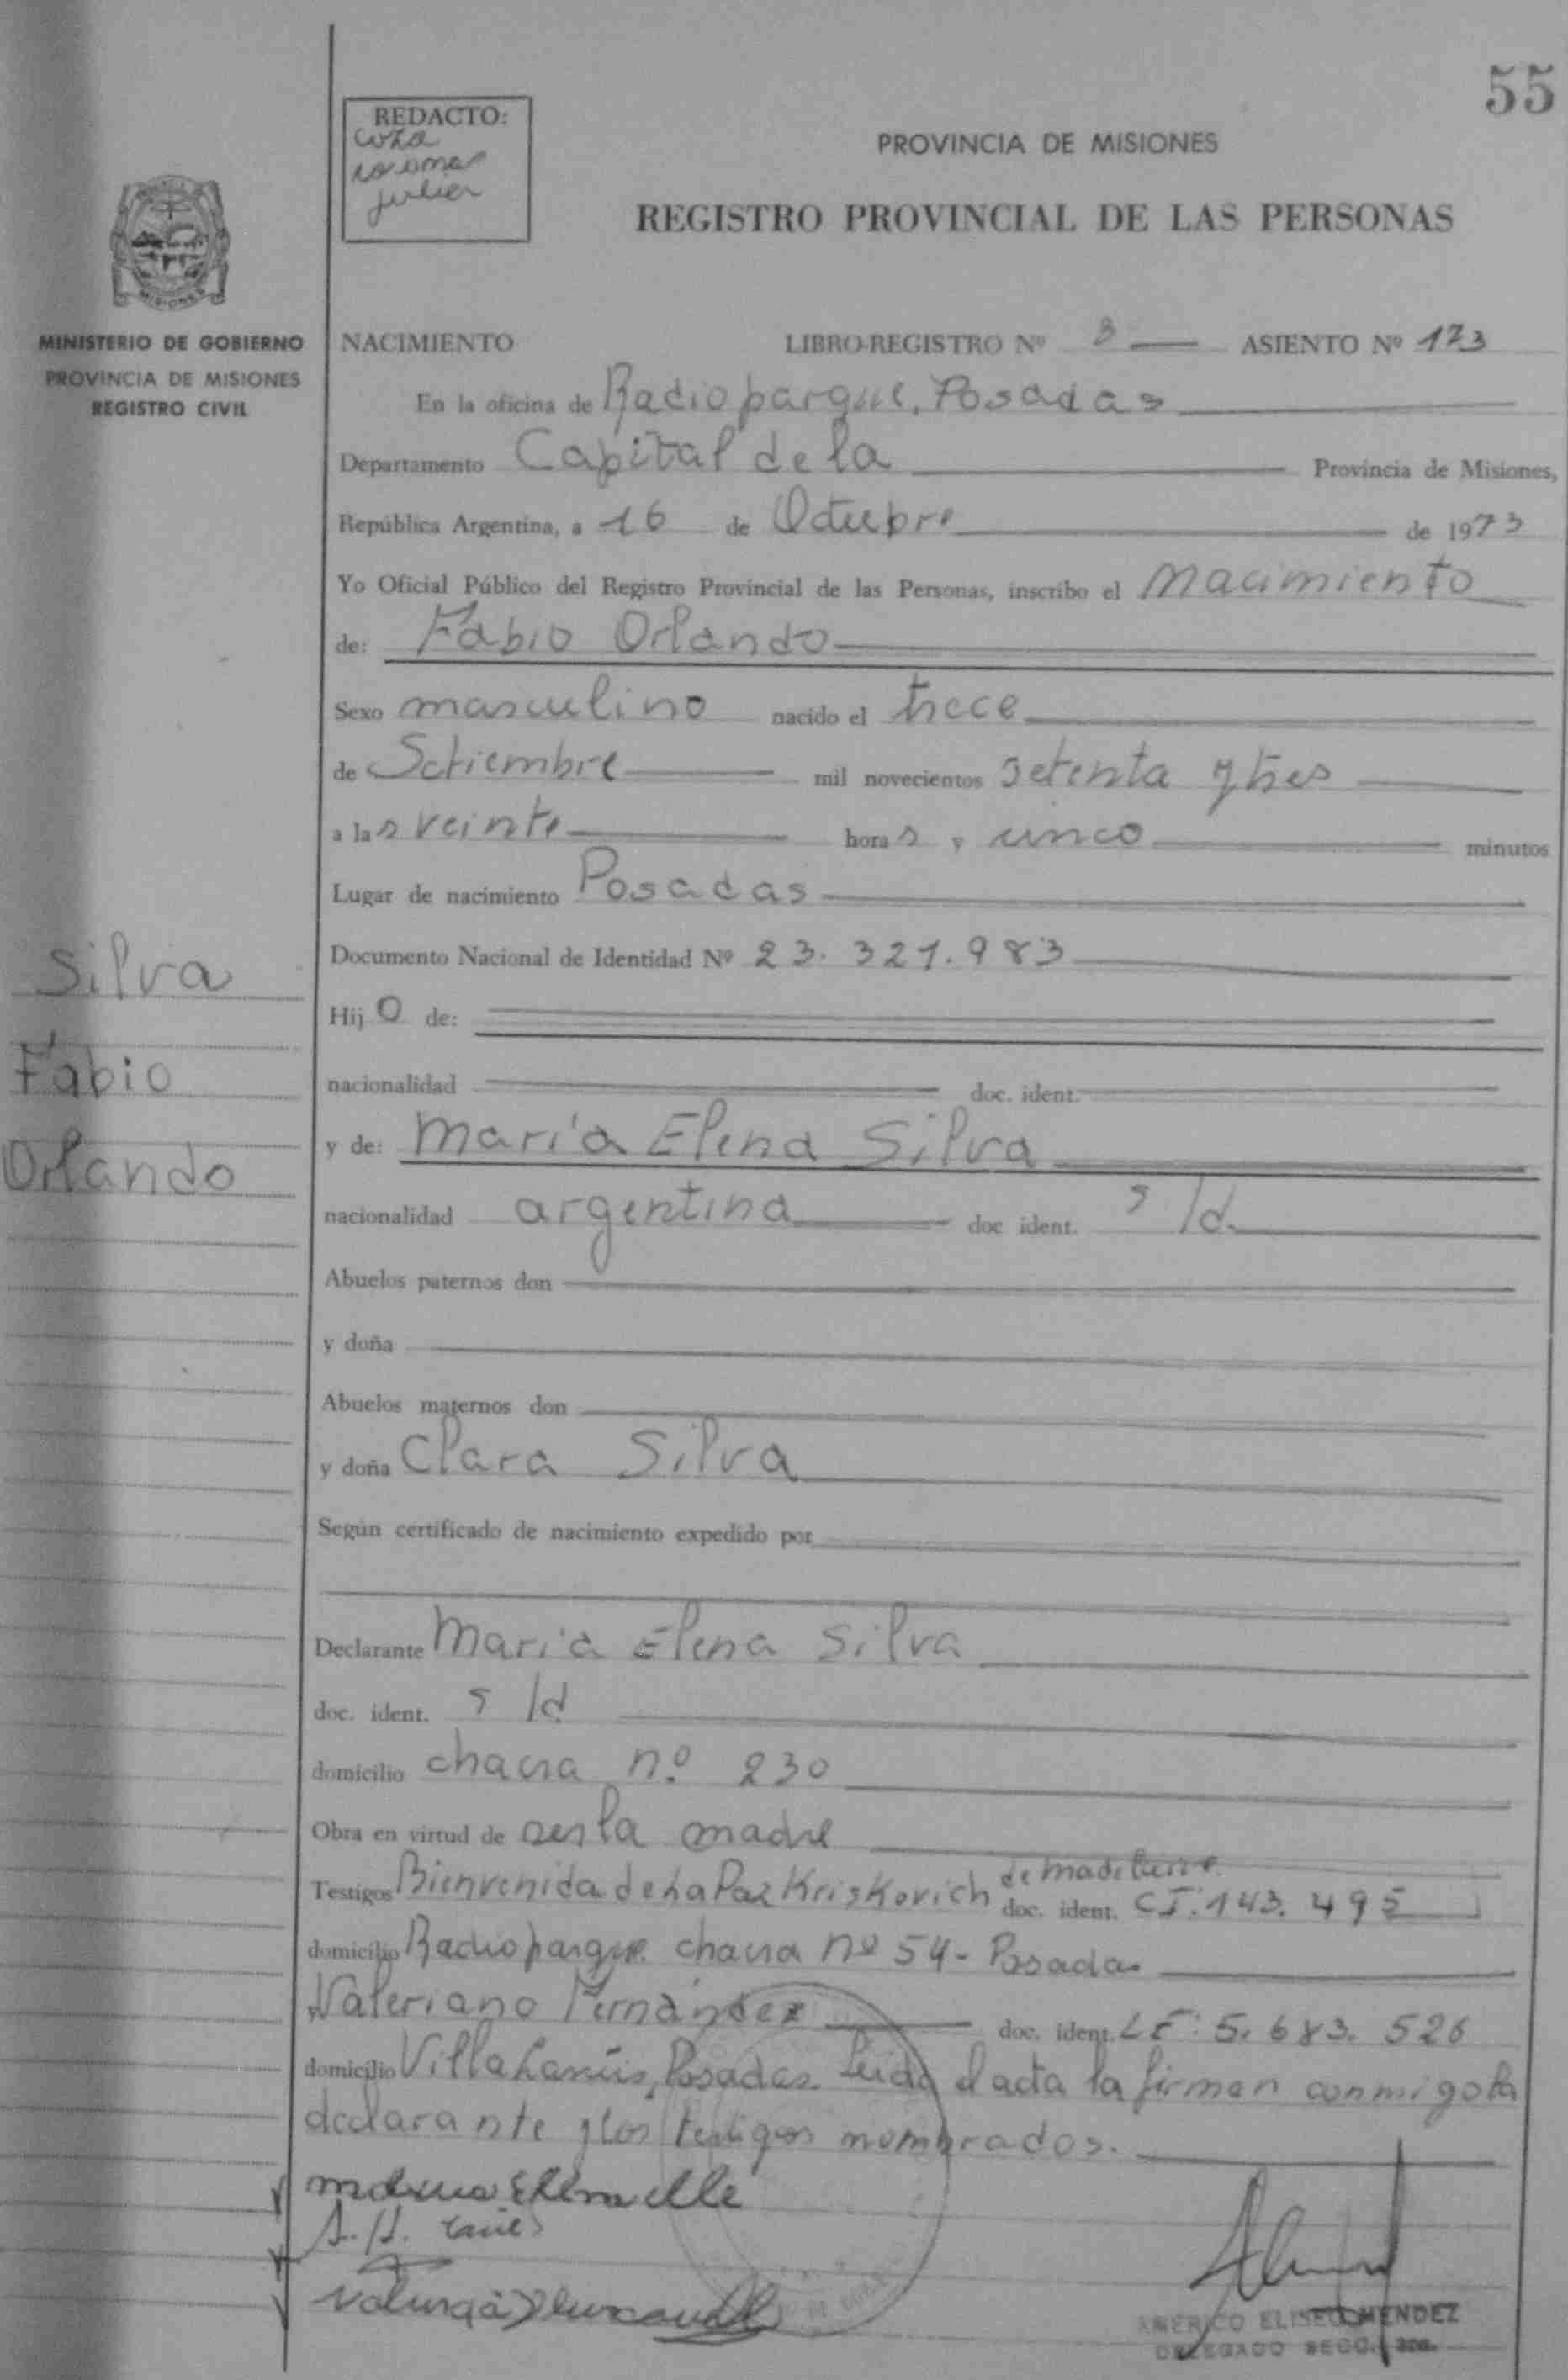 55
REDACTO:
PROVINCIA DE MISIONES
REGISTRO PROVINCIAL DE LAS PERSONAS
MISIONES
MINISTERIO DE GOBIERNO
PROVINCIA DE MISIONES
REGISTRO CIVIL
NACIMIENTO LIBRO-REGISTRO Nº 3 ASIENTO Nº 173
En la oficina de Radioparque, Posadas
Departamento Capital de la Provincia de Misiones,
República Argentina, a 16 de Octubre de 1973
Yo Oficial Público del Registro Provincial de las Personas, inscribo el nacimiento
de: Fabio Orlando
Sexo masculino nacido el trece
de Setiembre mil novecientos setenta y tres
a las veinte horas y cinco minutos
Lugar de nacimiento Posadas
Silva
Documento Nacional de Identidad Nº 23.321.983
Hijo de:
Fabio
nacionalidad doc. ident.
y de: María Elena Silva
Orlando
nacionalidad argentina doc ident. s/d
Abuelos paternos don
y doña
Abuelos maternos don
y doña Clara Silva
Según certificado de nacimiento expedido por
Declarante María Elena Silva
doc. ident. s/d
domicilio chacra nº 230
Obra en virtud de ser la madre
Testigos Bienvenida de La Paz Kriskovich de doc. ident. CI: 143.495
domicilio Radioparque chacra nº 54 - Posadas
Valeriano Fernández doc. ident. LE: 5.683.526
domicilio Villa Lanús, Posadas. Leída el acta la firman conmigo la
declarante y los testigos nombrados.
AMERICO ELISEO MENDEZ
DELEGADO SECC.